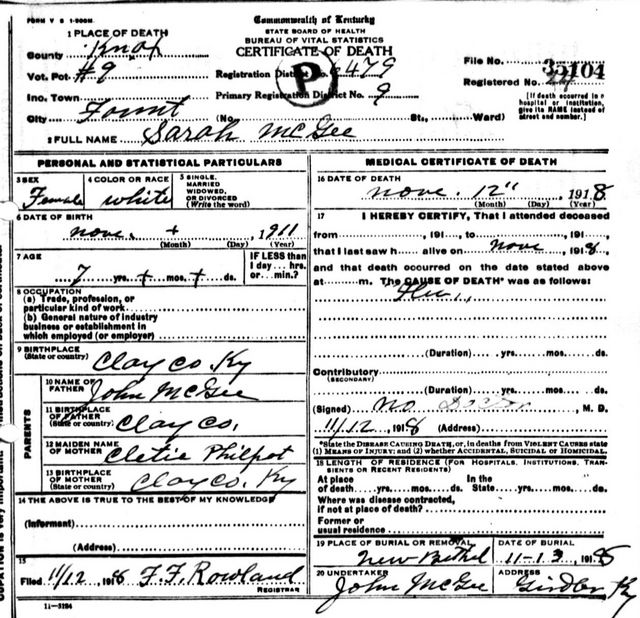 FORM V S 1-500M.
Commonwealth of Kentucky
STATE BOARD OF HEALTH
BUREAU OF VITAL STATISTICS
CERTIFICATE OF DEATH
1 PLACE OF DEATH
County Knox
Vot. Pct. #9
Registration District No. 479
File No.
104
Registered No.
Inc. Town
Primary Registration District No. 9
P
City Fount (No. St., Ward)
[If death occurred in a hospital or institution, give its NAME instead of street and number.]
2 FULL NAME Sarah McGee
PERSONAL AND STATISTICAL PARTICULARS
3 SEX Female
4 COLOR OR RACE White
5 SINGLE, MARRIED WIDOWED, OR DIVORCED (Write the word)
6 DATE OF BIRTH
Nove. + 1911
(Month) (Day) (Year)
7 AGE
7 yrs. + mos. + ds.
IF LESS than 1 day... hrs. or min.?
8 OCCUPATION
(a) Trade, profession, or particular kind of work
(b) General nature of industry business or establishment in which employed (or employer)
9 BIRTHPLACE (State or country) Clay Co. Ky
PARENTS
10 NAME OF FATHER John McGee
11 BIRTHPLACE OF FATHER (State or country) Clay Co.
12 MAIDEN NAME OF MOTHER Cletie Philpot
13 BIRTHPLACE OF MOTHER (State or country) Clay Co. Ky
14 THE ABOVE IS TRUE TO THE BEST OF MY KNOWLEDGE
(Informant)
(Address)
15
Filed 11/12, 1918 F. F. Rowland
REGISTRAR
11-3184
MEDICAL CERTIFICATE OF DEATH
16 DATE OF DEATH
Nove. 12" 1918
(Month) (Day) (Year)
17 I HEREBY CERTIFY, That I attended deceased
from , 191 , to , 191 ,
that I last saw h alive on Nove , 1918,
and that death occurred on the date stated above
at m. The CAUSE OF DEATH* was as follows:
Flu
(Duration) yrs. mos. ds.
Contributory
(SECONDARY)
(Duration) yrs. mos. ds.
(Signed) No Doctor, M. D.
11/12, 1918 (Address)
*State the DISEASE CAUSING DEATH, or, in deaths from VIOLENT CAUSES state (1) MEANS OF INJURY; and (2) whether ACCIDENTAL, SUICIDAL or HOMICIDAL.
18 LENGTH OF RESIDENCE (FOR HOSPITALS, INSTITUTIONS, TRANSIENTS OR RECENT RESIDENTS)
At place of death yrs. mos. ds. In the State yrs. mos. ds.
Where was disease contracted, if not at place of death?
Former or usual residence
19 PLACE OF BURIAL OR REMOVAL New Bethel
DATE OF BURIAL 11-13 1918
20 UNDERTAKER John McGee
ADDRESS Girdler Ky